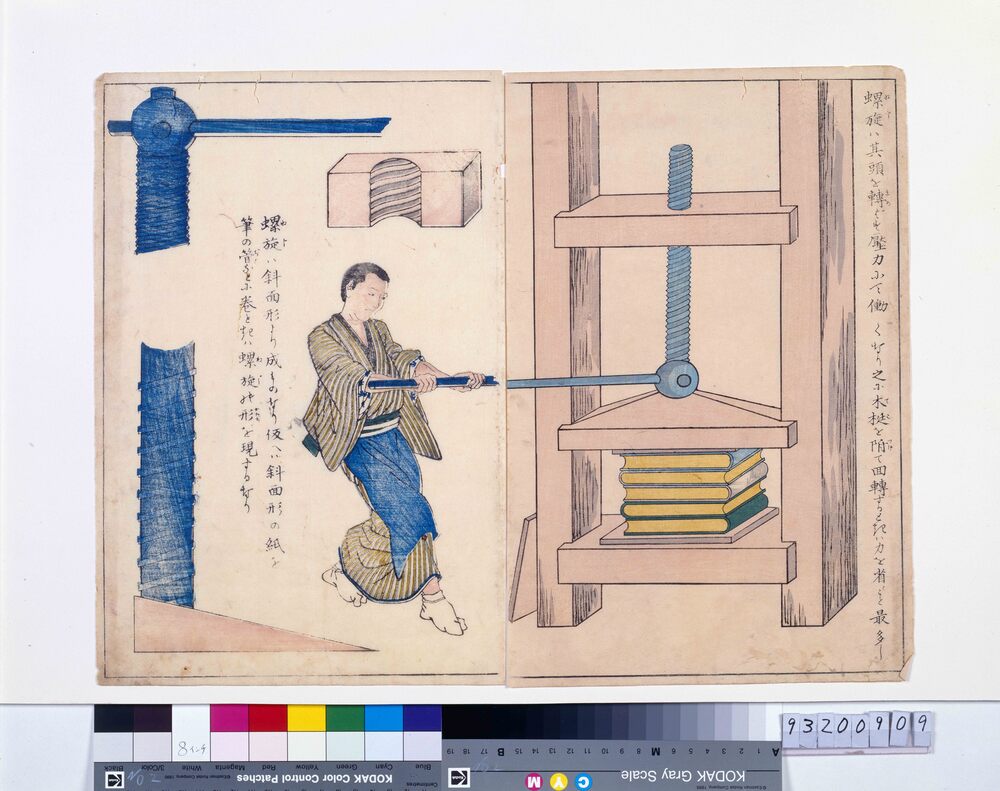 螺旋ハ其頭を轉ずれバ壓力にて働くなり之に木梃を附て回轉するときハ力を省くこと最多し
螺旋ハ斜面形より成ものなり仮へハ斜面形の紙を
筆の管などに巻ときハ螺旋の形を現するなり
8インチ
Black
3/Color
White
Magenta
Red
Yellow
Green
Cyan
Blue
KODAK Color Control Patches
Centimetres
A 1 2 3 4 5 6 M 8 9 10 11 12 13 14 15 B 17 18 19
KODAK Gray Scale
C Y M
93200909